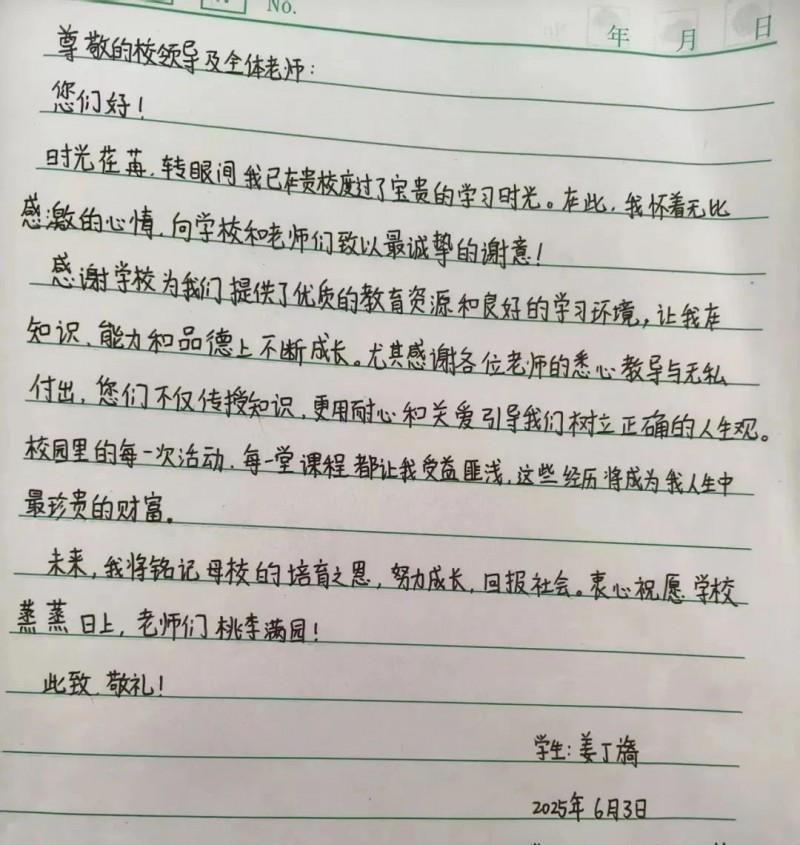 No.
年 月 日
尊敬的校领导及全体老师:
您们好!
时光荏苒,转眼间我已在贵校度过了宝贵的学习时光。在此,我怀着无比
感激的心情,向学校和老师们致以最诚挚的谢意!
感谢学校为我们提供了优质的教育资源和良好的学习环境,让我在
知识、能力和品德上不断成长。尤其感谢各位老师的悉心教导与无私
付出,您们不仅传授知识,更用耐心和关爱引导我们树立正确的人生观。
校园里的每一次活动、每一堂课程都让我受益匪浅,这些经历将成为我人生中
最珍贵的财富。
未来,我将铭记母校的培育之恩,努力成长,回报社会。衷心祝愿学校
蒸蒸日上,老师们桃李满园!
此致、敬礼!
学生:姜丁旖
2025年6月3日